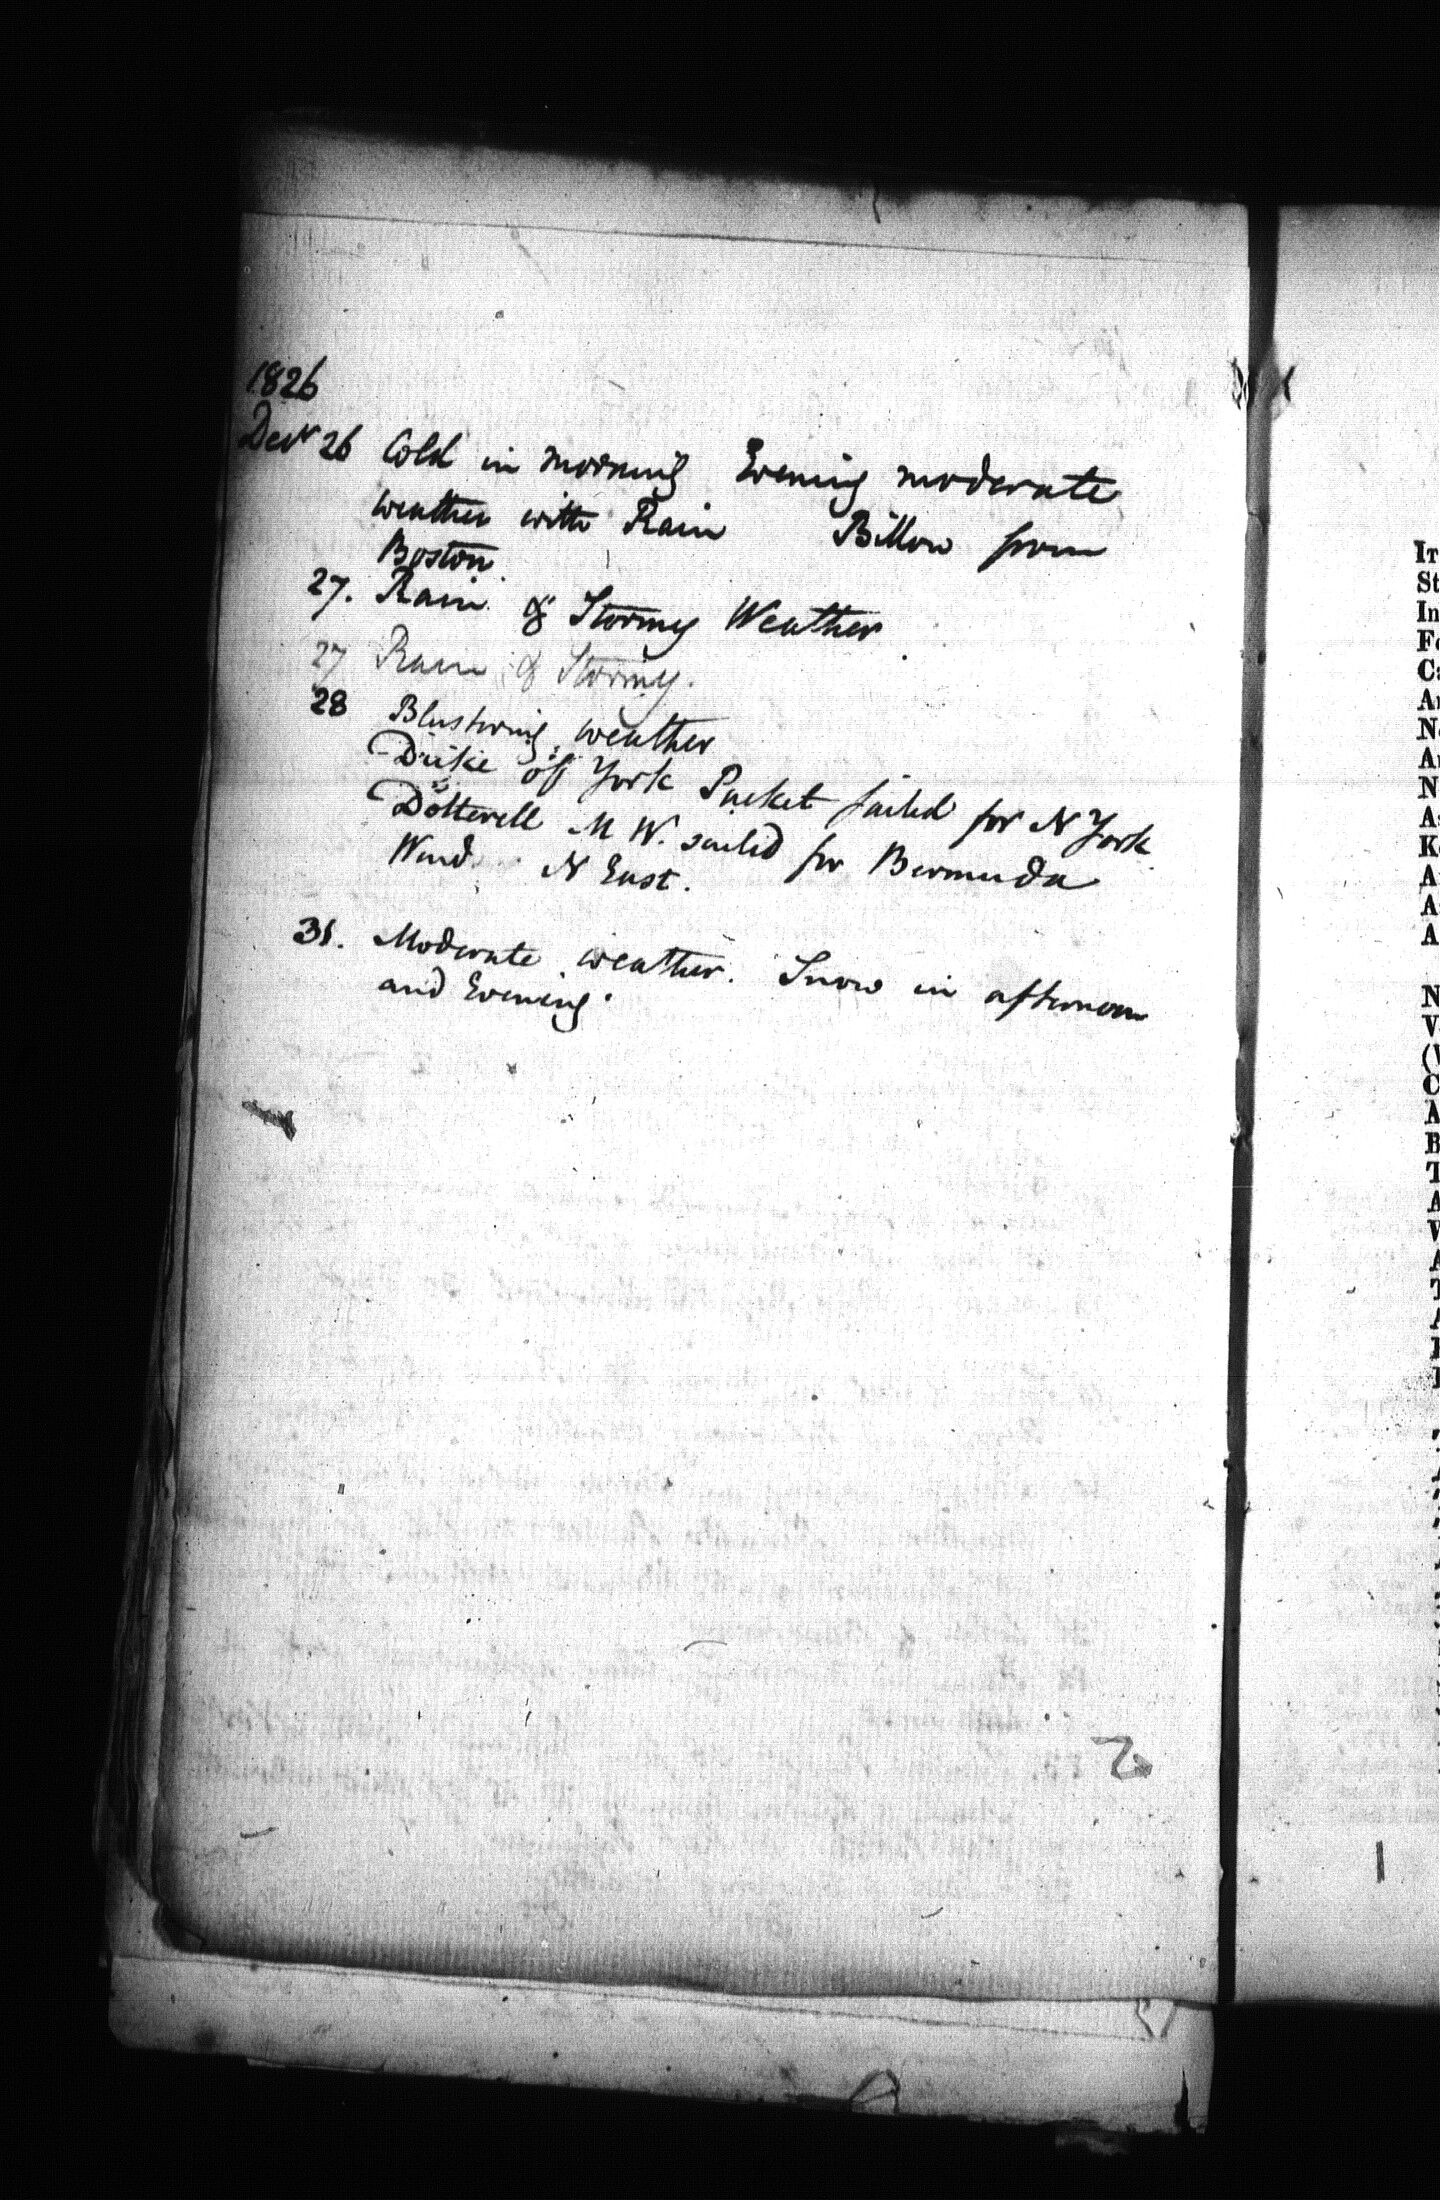 1826
Decr 26 Cold in morning Evening moderate
weather with Rain Billow from
Boston
27. Rain & Stormy Weather
27 Rain & Stormy.
28 Blustering weather
Duke of York Packet sailed for N York
Dotterell M W. sailed for Bermuda
Wind N East.
31. Moderate weather. Snow in afternoon
and Evening.
2